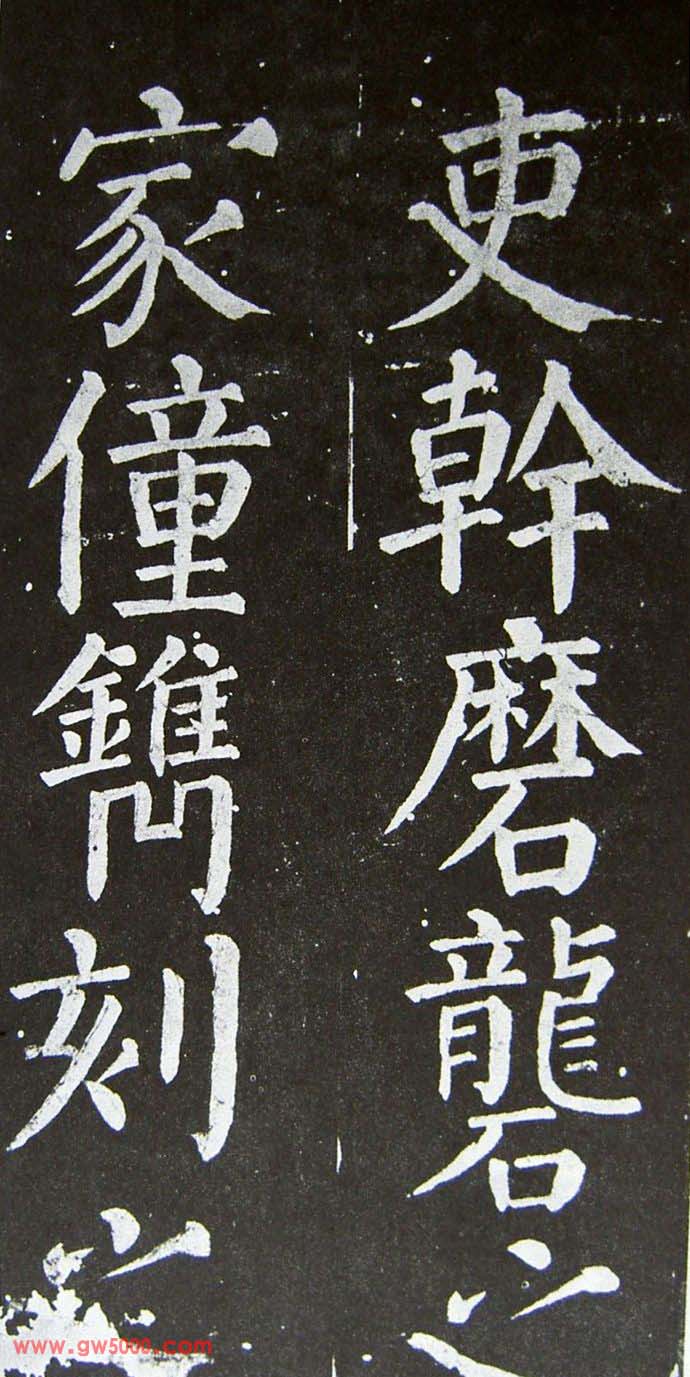 吏幹磨礱之
家僮鐫刻之
www.gw5000.com